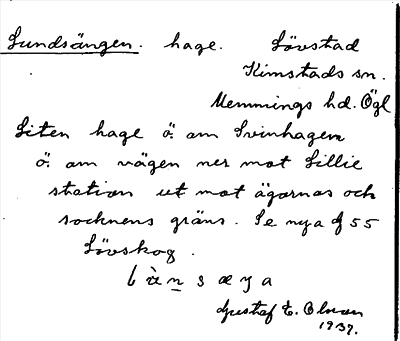 Lundsängen. hage. Lövstad
Kimstads sn.
Memmings hd. Ögl
Liten hage ö. om Svinhagen
ö. om vägen ner mot Lillie
station ut mot ägornas och
socknens gräns. Se nya 55
Lövskog.
Gustaf E. Olson
1937.